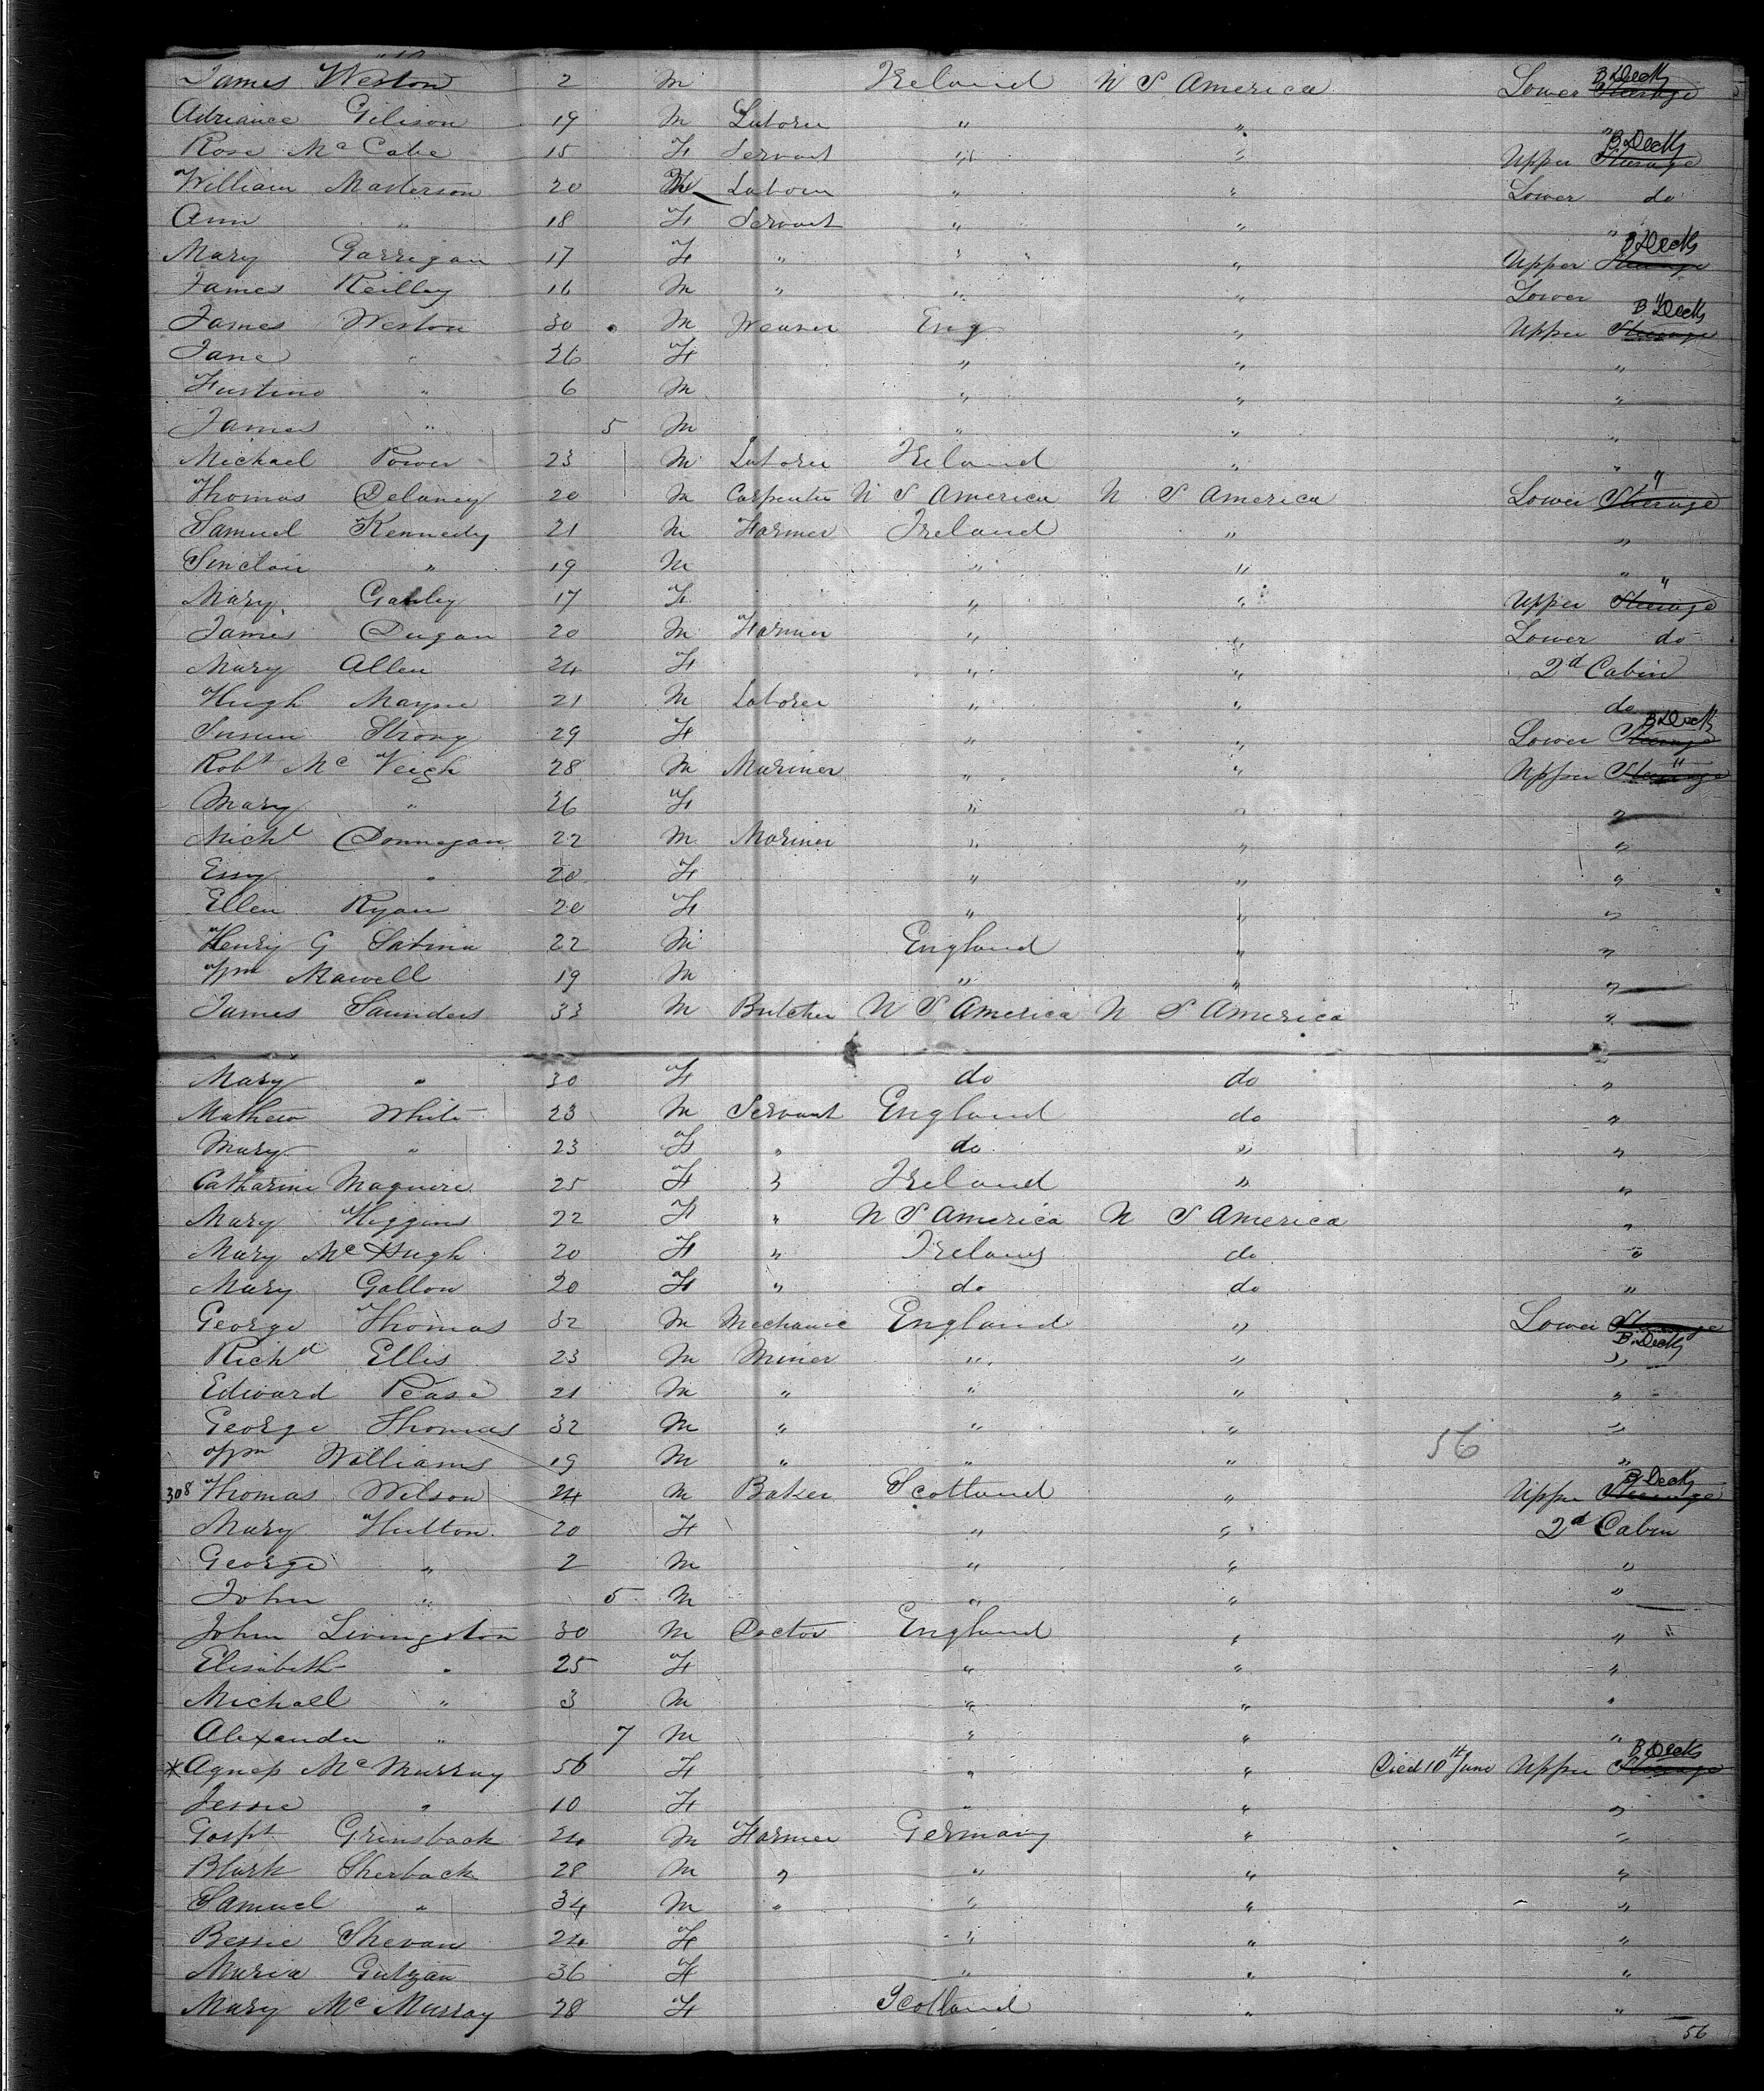 James Weston 2 M Ireland U S America Lower Steerage B Deck
Adriance Gilison 19 M Laborer " " "
Rose McCabe 15 F Servant " " Upper Steerage B Deck
William Masterson 20 M Laborer " " Lower do
Ann " 18 F Servant " " "
Mary Garrigan 17 F " " " Upper Steerage B Deck
James Reilley 16 M " " " Lower "
James Weston 30 M Weaver Eng " Upper Steerage B Deck
Jane " 26 F " " "
Fustino " 6 M " " "
James " 5 M " " "
Michael Power 23 M Laborer Ireland " "
Thomas Delaney 20 M Carpenter U S America U S America Lower Steerage "
Samuel Kennedy 21 M Farmer Ireland " "
Sinclair " 19 M " " "
Mary Ganley 17 F " " Upper Steerage "
James Dugan 20 M Farmer " " Lower do
Mary Allen 24 F " " 2d Cabin
Hugh Mayne 21 M Laborer " " do
Susan Strong 29 F " " Lower Steerage B Deck
Robt McVeigh 28 M Mariner " " Upper Steerage "
Mary " 26 F " " "
Michl Donnegan 22 M Mariner " " "
Essy " 20 F " " "
Ellen Ryan 20 F " " "
Henry G Satina 22 M England " "
Wm Mawell 19 M " " "
James Saunders 33 M Butcher U S America U S America "
Mary " 30 F do do "
Mathew White 23 M Servant England do "
Mary " 23 F " do " "
Catharine Maguire 25 F " Ireland " "
Mary Higgins 22 F " U S America U S America "
Mary McHugh 20 F " Ireland do "
Mary Gallon 20 F " do do "
George Thomas 32 M Mechanic England " Lower Steerage B Deck
Richd Ellis 23 M Miner " " "
Edward Pease 21 M " " " "
George Thomas 32 M " " " "
56
Wm Williams 19 M " " " "
308 Thomas Wilson 24 M Baker Scotland " Upper Steerage B Deck
Mary Hutton 20 F " " 2d Cabin
George " 2 M " " "
John " 5 M " " "
John Livingston 30 M Doctor England " "
Elisabeth " 25 F " " "
Michael " 3 M " " "
Alexander " 7 M " " "
* Agness McMurray 56 F " " Died 10th June Upper Steerage B Deck
Jessie " 10 F " " "
Gospt Grinsback 24 M Farmer Germany " "
Blark Sherback 28 M " " " "
Samuel " 34 M " " " "
Bessie Shevan 24 F " " "
Maria Gutzan 36 F " " "
Mary McMurray 28 F Scotland " "
56